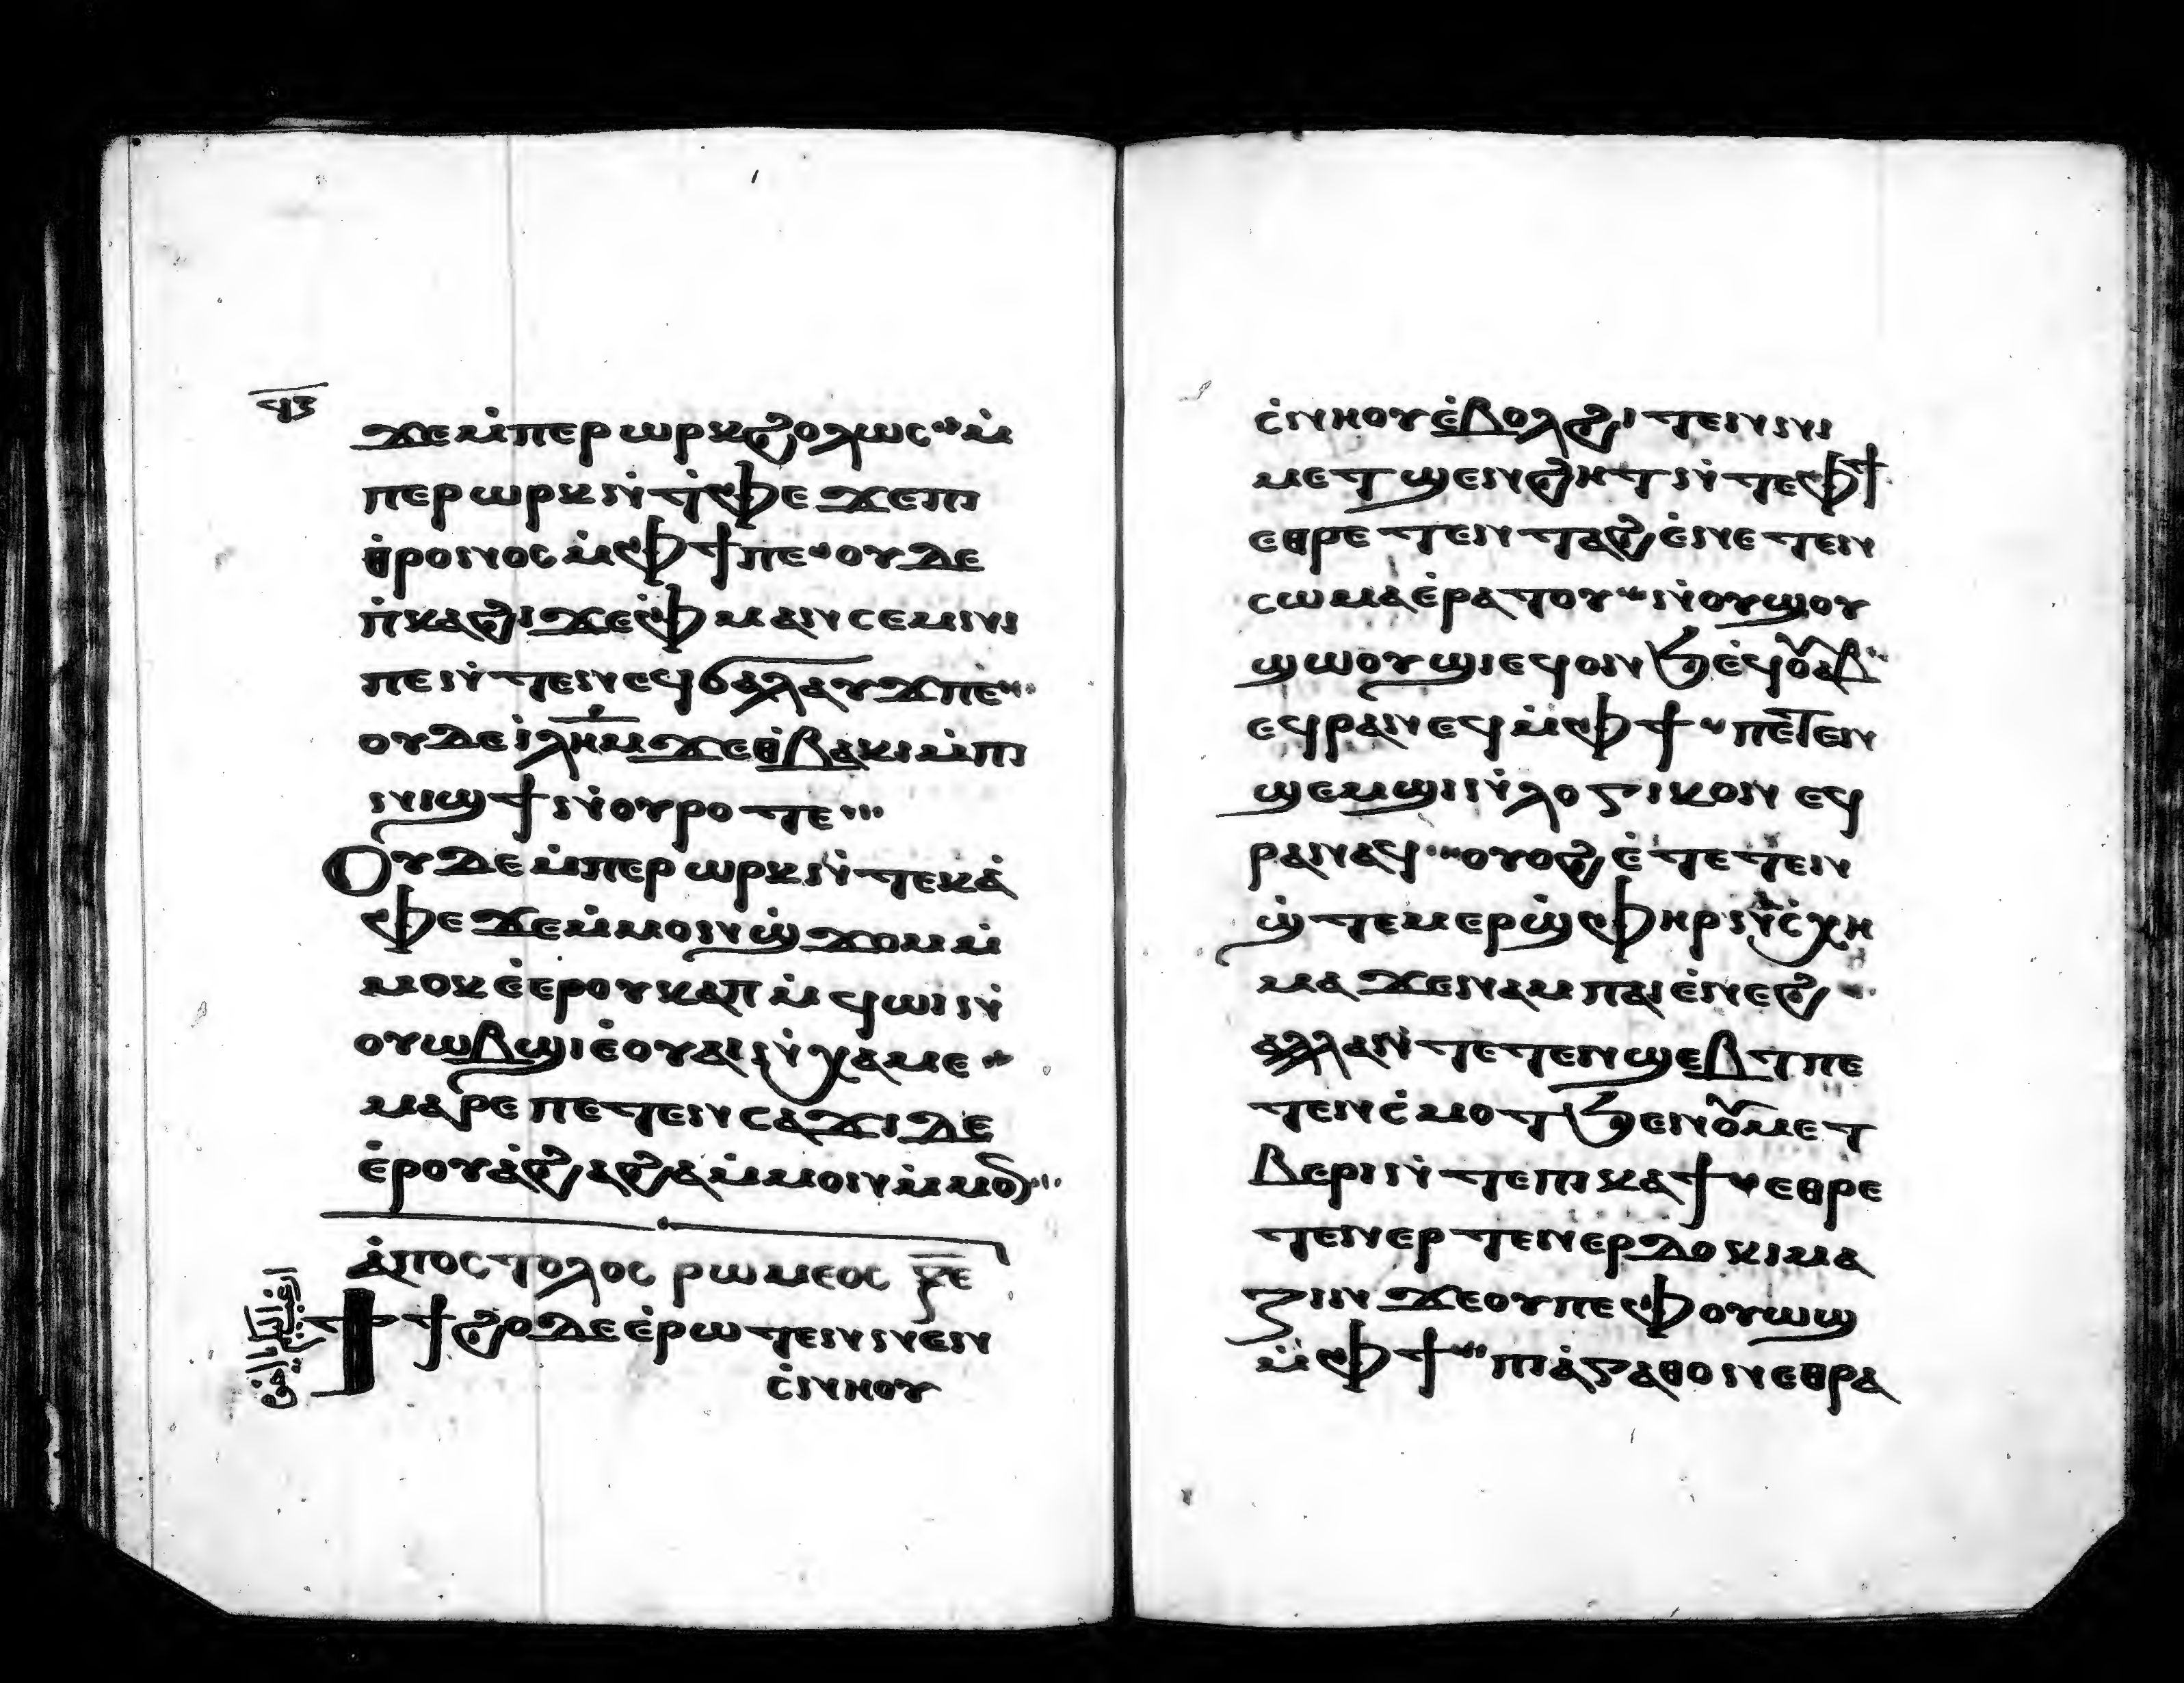 ϥ̅ⲍ̅
ϫⲉⲙ̇ⲡⲉⲣⲱⲣⲕϩⲟⲗⲱⲥ ⲙ̇
ⲡⲉⲣⲱⲣⲕⲛ̇ⲧ̇ⲫⲉ ϫⲉⲡⲓ
ⲑ̇ⲣⲟⲛⲟⲥ ⲙ̇ⲫϯ ⲡⲉ ⲟⲩⲇⲉ
ⲡ̇ⲕⲁϩⲓ ϫⲉⲫ̇ⲙⲁⲛⲥⲉⲙⲛⲓ
ⲡⲉ ⲛ̇ⲧⲉⲛⲉϥϭⲁⲗⲁⲩϫ ⲡⲉ
ⲟⲩⲇⲉ ⲓ̇ⲗ̅ⲏ̅ⲙ̅ ϫⲉⲑ̇ⲃⲁⲕⲓ ⲙ̇ⲡⲓ
ⲛⲓϣϯ ⲛ̇ⲟⲩⲣⲟ ⲧⲉ
Ⲟⲩⲇⲉ ⲙ̇ⲡⲉⲣⲱⲣⲕ ⲛ̇ⲧⲉⲕⲁ̇
ⲫⲉ ϫⲉⲙ̇ⲙⲟⲛϣ̇ϫⲟⲙ ⲙ̇
ⲙⲟⲕ ⲉ̇ⲉⲣⲟⲩⲕⲁⲡ ⲙ̇ϥⲱⲓ ⲛ̇
ⲟⲩⲱⲃϣ ⲓⲉ̇ ⲟⲩⲁⲓ ⲛ̇ⲭⲁⲙⲉ
ⲙⲁⲣⲉ ⲡⲉⲧⲉⲛⲥⲁϫⲓ ⲇⲉ
ⲉ̇ⲣⲟⲩⲁ̇ϩⲁ ⲁϩⲁ ⲙ̇ⲙⲟⲛ ⲙ̇ⲙⲟⲛ
ⲁ̇ⲡⲟⲥⲧⲟⲗⲟⲥ ⲣⲱⲙⲉⲟⲥ
Ϯϯϩⲟ ⲇⲉ ⲉ̇ⲣⲱⲧⲉⲛ ⲛⲉⲛ
ⲥ̇ⲛⲏⲟⲩ
ⲥ̇ⲛⲏⲟⲩ ⲉ̇ⲃⲟⲗϩⲓⲧⲉⲛ ⲛⲓ
ⲙⲉⲧϣⲉⲛϩⲏⲧ ⲛ̇ⲧⲉⲫϯ
ⲉⲑⲣⲉⲧⲉⲛⲧⲁϩⲉ̇ ⲛⲉⲧⲉⲛ
ⲥⲱⲙⲁ ⲉ̇ⲣⲁⲧⲟⲩ ⲛ̇ⲟⲩϣⲟⲩ
ϣⲱⲟⲩϣⲓ ⲉϥⲟⲛϧ ⲉ̇ϥⲟⲩⲁⲃ
ⲉϥⲣⲁⲛⲉϥ ⲙ̇ⲫϯ ⲡⲉⲧⲉⲛ
ϣⲉⲙϣⲓ ⲛ̇ⲗⲟⲅⲓⲕⲟⲛ ⲉϥ
ⲣⲁⲛⲁϥ ⲟⲩⲟϩ ⲉ̇ⲧⲉⲧⲉⲛ
ϣ̇ⲧⲉⲙⲉⲣϣ̇ⲫⲏⲣ ⲛ̇ⲥ̇ⲭⲏ
ⲙⲁ ϫⲉⲛⲁⲙ ⲡⲁⲓⲉ̇ⲛⲉϩ
ⲁⲗⲗⲁ ⲛ̇ⲧⲉⲧⲉⲛϣⲉⲃⲧ ⲡⲉ
ⲧⲉⲛⲥ̇ⲙⲟⲧ ϧⲉⲛⲟⲩⲙⲉⲧ
ⲃⲉⲣⲓ ⲛ̇ⲧⲉⲡⲓⲕⲁϯ ⲉⲑⲣⲉ
ⲧⲉⲛⲉⲣⲧⲉⲛⲉⲣⲇⲟⲕⲓⲙⲁ
ⲍⲓⲛ ϫⲉⲟⲩ ⲡⲉ ⲫⲟⲩⲱϣ
ⲙ̇ⲫϯ ⲡⲓⲁ̇ⲅⲁⲑⲟⲛ ⲉⲑⲣⲁ